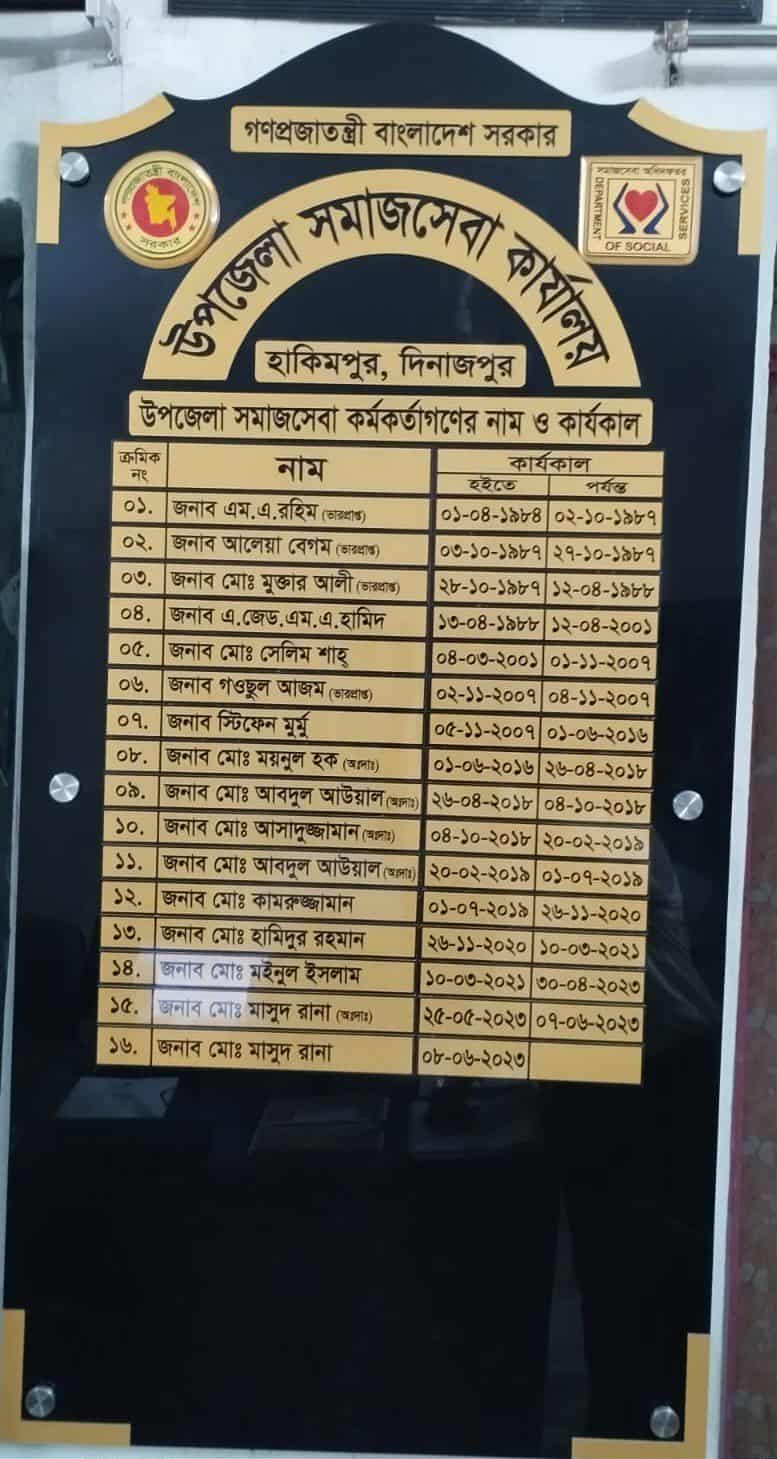 গণপ্রজাতন্ত্রী বাংলাদেশ সরকার
গণপ্রজাতন্ত্রী বাংলাদেশ
সরকার
সমাজসেবা অধিদফতর
DEPARTMENT
OF SOCIAL
SERVICES
উপজেলা সমাজসেবা কার্যালয়
হাকিমপুর, দিনাজপুর
উপজেলা সমাজসেবা কর্মকর্তাগণের নাম ও কার্যকাল
ক্রমিক নং নাম কার্যকাল
হইতে পর্যন্ত
০১. জনাব এম.এ.রহিম (ভারপ্রাপ্ত) ০১-০৪-১৯৮৪ ০২-১০-১৯৮৭
০২. জনাব আলেয়া বেগম (ভারপ্রাপ্ত) ০৩-১০-১৯৮৭ ২৭-১০-১৯৮৭
০৩. জনাব মোঃ মুক্তার আলী (ভারপ্রাপ্ত) ২৮-১০-১৯৮৭ ১২-০৪-১৯৮৮
০৪. জনাব এ.জেড.এম.এ.হামিদ ১৩-০৪-১৯৮৮ ১২-০৪-২০০১
০৫. জনাব মোঃ সেলিম শাহ্ ০৪-০৩-২০০১ ০১-১১-২০০৭
০৬. জনাব গওছুল আজম (ভারপ্রাপ্ত) ০২-১১-২০০৭ ০৪-১১-২০০৭
০৭. জনাব স্টিফেন মুর্মু ০৫-১১-২০০৭ ০১-০৬-২০১৬
০৮. জনাব মোঃ ময়নুল হক (অঃদাঃ) ০১-০৬-২০১৬ ২৬-০৪-২০১৮
০৯. জনাব মোঃ আবদুল আউয়াল (অঃদাঃ) ২৬-০৪-২০১৮ ০৪-১০-২০১৮
১০. জনাব মোঃ আসাদুজ্জামান (অঃদাঃ) ০৪-১০-২০১৮ ২০-০২-২০১৯
১১. জনাব মোঃ আবদুল আউয়াল (অঃদাঃ) ২০-০২-২০১৯ ০১-০৭-২০১৯
১২. জনাব মোঃ কামরুজ্জামান ০১-০৭-২০১৯ ২৬-১১-২০২০
১৩. জনাব মোঃ হামিদুর রহমান ২৬-১১-২০২০ ১০-০৩-২০২১
১৪. জনাব মোঃ মইনুল ইসলাম ১০-০৩-২০২১ ৩০-০৪-২০২৩
১৫. জনাব মোঃ মাসুদ রানা (অঃদাঃ) ২৫-০৫-২০২৩ ০৭-০৬-২০২৩
১৬. জনাব মোঃ মাসুদ রানা ০৮-০৬-২০২৩